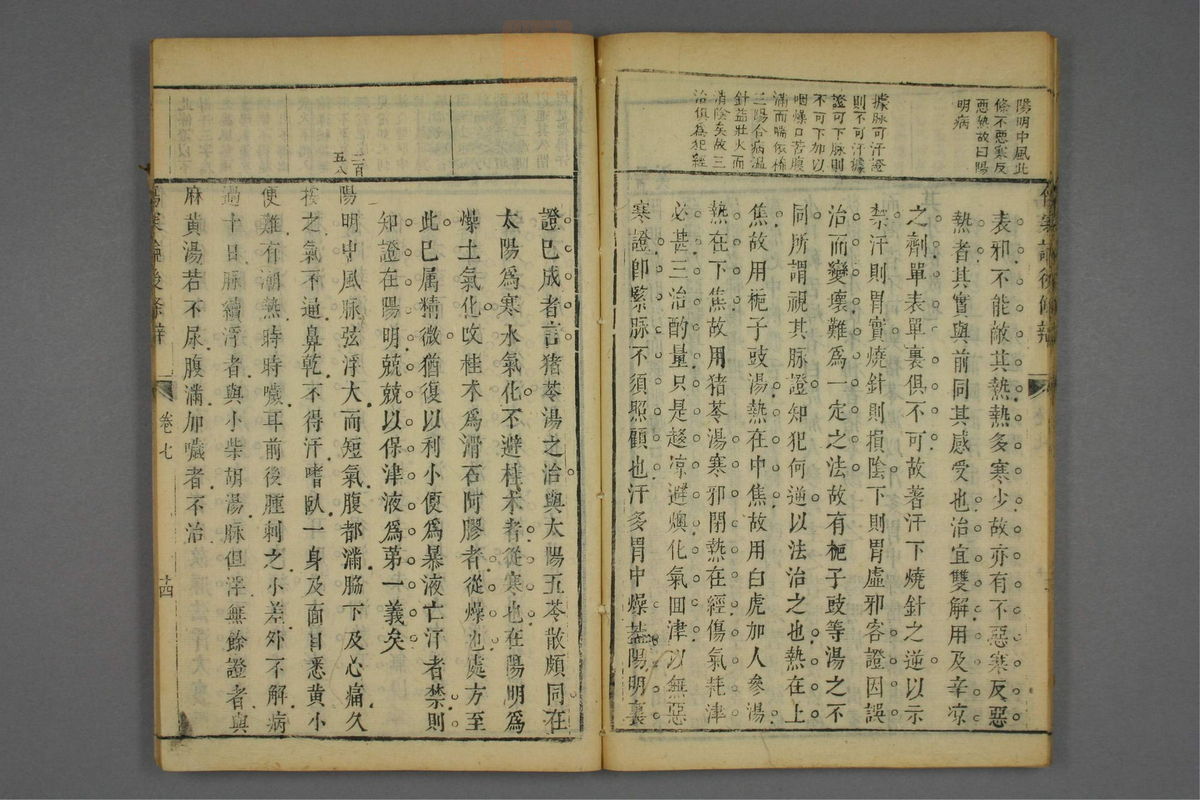 陽明中風此
條不惡寒反
惡熱故曰陽
明病
據脉可汗證
則不可汗據
證可下脉則
不可下加以
咽燥口苦腹
滿而喘依稀
三陽合病溫
針益壯火而
消陰矣故三
治俱爲犯經
表邪不能敵其熱熱多寒少故亦有不惡寒反惡
熱者其實與前同其感受也治宜雙解用及辛凉
之劑單表單裏俱不可故著汗下燒針之逆以示
禁汗則胃實燒針則損陰下則胃虛邪客證因誤
治而變壞難爲一定之法故有梔子豉等湯之不
同所謂視其脉證知犯何逆以法治之也熱在上
焦故用梔子豉湯熱在中焦故用白虎加人參湯
熱在下焦故用猪苓湯寒邪閉熱在經傷氣耗津
必甚三治酌量只是趍凉避燠化氣囬津以無惡
寒證卽緊脉不須照顧也汗多胃中燥蓋陽明裏
傷寒論後條辨
證已成者言猪苓湯之治與太陽五苓散頗同在
太陽爲寒水氣化不避桂术者從寒也在陽明爲
燥土氣化改桂术爲滑石阿膠者從燥也處方至
此已属精微猶復以利小便爲暴液亡汗者禁則
知證在陽明兢兢以保津液爲第一義矣
二百
五八
陽明中風脉弦浮大而短氣腹都滿脇下及心痛久
按之氣不通鼻乾不得汗嗜臥一身及面目悉黄小
便難有潮熱時時噦耳前後腫刺之小差外不解病
過十日脉續浮者與小柴胡湯脉但浮無餘證者與
麻黄湯若不尿腹滿加噦者不治
傷寒論後條辨
卷七
十四